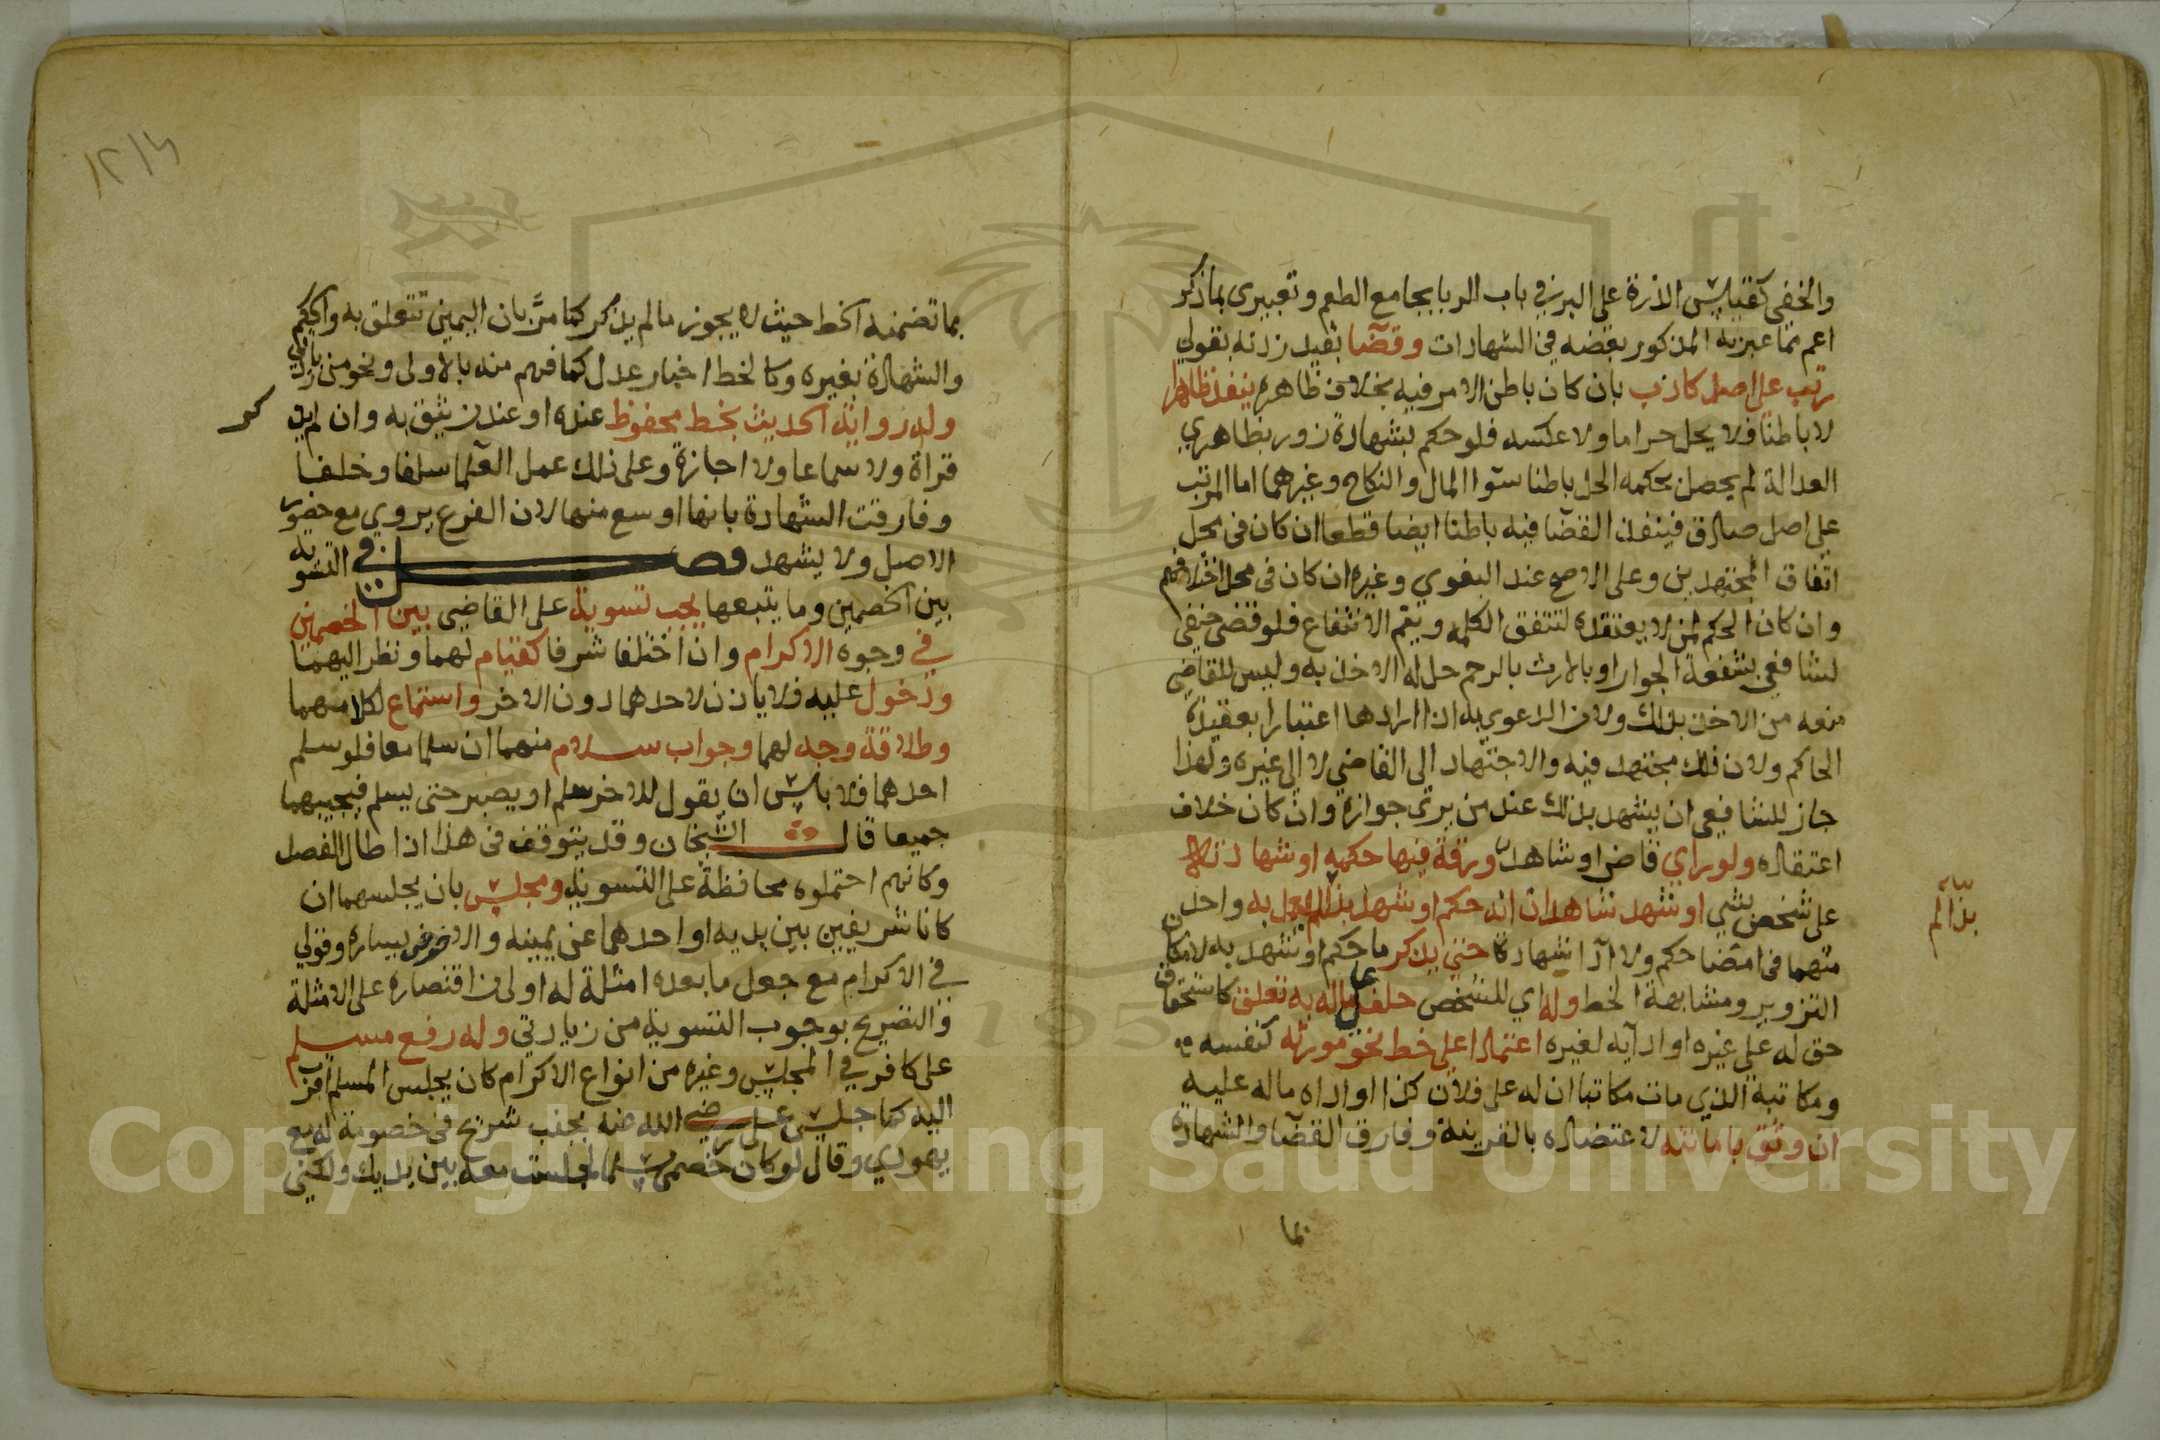 والخفي كقياس الذرة على البر في باب الربا بجامع الطعم وتعبيري بما ذكر
اعم مما عبر به المذكور بعضه في الشهادات وقضآ بقيد زدته بقولي
رتب على اصل كاذب بان كان باطن الامر فيه بخلاف ظاهره ينفذ ظاهرا
لا باطنا فلا يحل حراما ولا عكسه فلو حكم بشهادة زور بظاهري
العدالة لم يحصل بحكمه الحل باطنا سوآ المال والنكاح وغيرهما اما المرتب
على اصل صادق فينفذ القضآ فيه باطنا ايضا قطعا ان كان في محل
اتفاق المجتهدين وعلى الاصح عند البغوي وغيره ان كان في محل اختلافهم
وان كان الحكم لمن لا يعتقده لتتفق الكلمة ويتم الانتفاع فلو قضى حنفي
لشافعي بشفعة الجوار او بالارث بالرحم حل له الاخذ به وليس للقاضي
منعه من الاخذ بذلك ولا من الدعوي به اذا ارادها اعتبارا بعقيدة
الحاكم ولان ذلك مجتهد فيه والاجتهاد الى القاضي لا الى غيره ولهذا
جاز للشافعي ان يشهد بذلك عند من يرى جوازه وان كان خلاف
اعتقاده ولو راي قاض او شاهد ورقة فيها حكمه او شهادته
على شخص بشي او شهد شاهدان انه حكم او شهد بذا لم يعمل به واحد
بذا لم
منهما في امضا حكم ولا ادآ شهادة حتي يذكر ما حكم او شهد به لامكان
التزوير ومشابهة الخط وله اي للشخص حلف على ماله به تعلق كاستحقاق
حق له على غيره او ادآيه لغيره اعتمادا على خط نحو مورثه كنفسه
ومكاتبة الذي مات مكاتبا ان له على فلان كذا او اداه ماله عليه
ان وثق بامانته لاعتضاده بالقرينة وفارق القضآ والشهادة
بما
بما تضمنه الخط حيث لا يجوز ما لم يذكر كما مر بان اليمين تتعلق به والحكم
والشهادة بغيره وكالخط اخبار عدل كما فهم منه بالاولى ونحو من زيادتي
وله رواية الحديث بخط محفوظ عنده او عند من يثق به وان لم يذكر
قراة ولا سماعا ولا اجازة وعلى ذلك عمل العلما سلفا وخلفا
وفارقت الشهادة بانها اوسع منها لان الفرع يروي مع حضور
الاصل ولا يشهد فصل في التسوية
بين الخصمين وما يتبعها يجب تسوية على القاضي بين الخصمين
في وجوه الاكرام وان اختلفا شرفا كقيام لهما ونظر اليهما
ودخول عليه فلا ياذن لاحدهما دون الاخر واستماع لكلامهما
وطلاقة وجه لهما وجواب سلام منهما ان سلما معا فلو سلم
احدهما فلا باس ان يقول للاخر سلم او يصبر حتى يسلم فيجيبهما
جميعا قال الشيخان وقد يتوقف في هذا اذا طال الفصل
وكانهم احتملوه محافظة على التسوية ومجلس بان يجلسهما ان
كانا شريفين بين يديه او احدهما عن يمينه والاخر عن يساره وقولي
في الاكرام مع جعل ما بعده امثلة له اولى من اقتصاره على الامثلة
والتصريح بوجوب التسوية من زيادتي وله رفع مسلم
على كافر في المجلس وغيره من انواع الاكرام كان يجلس المسلم اقرب
اليه كما جلس على رضي الله عنه بجنب شريح في خصومة له مع
يهودي وقال لو كان خصمي مسلما لجلست معه بين يديك ولكني